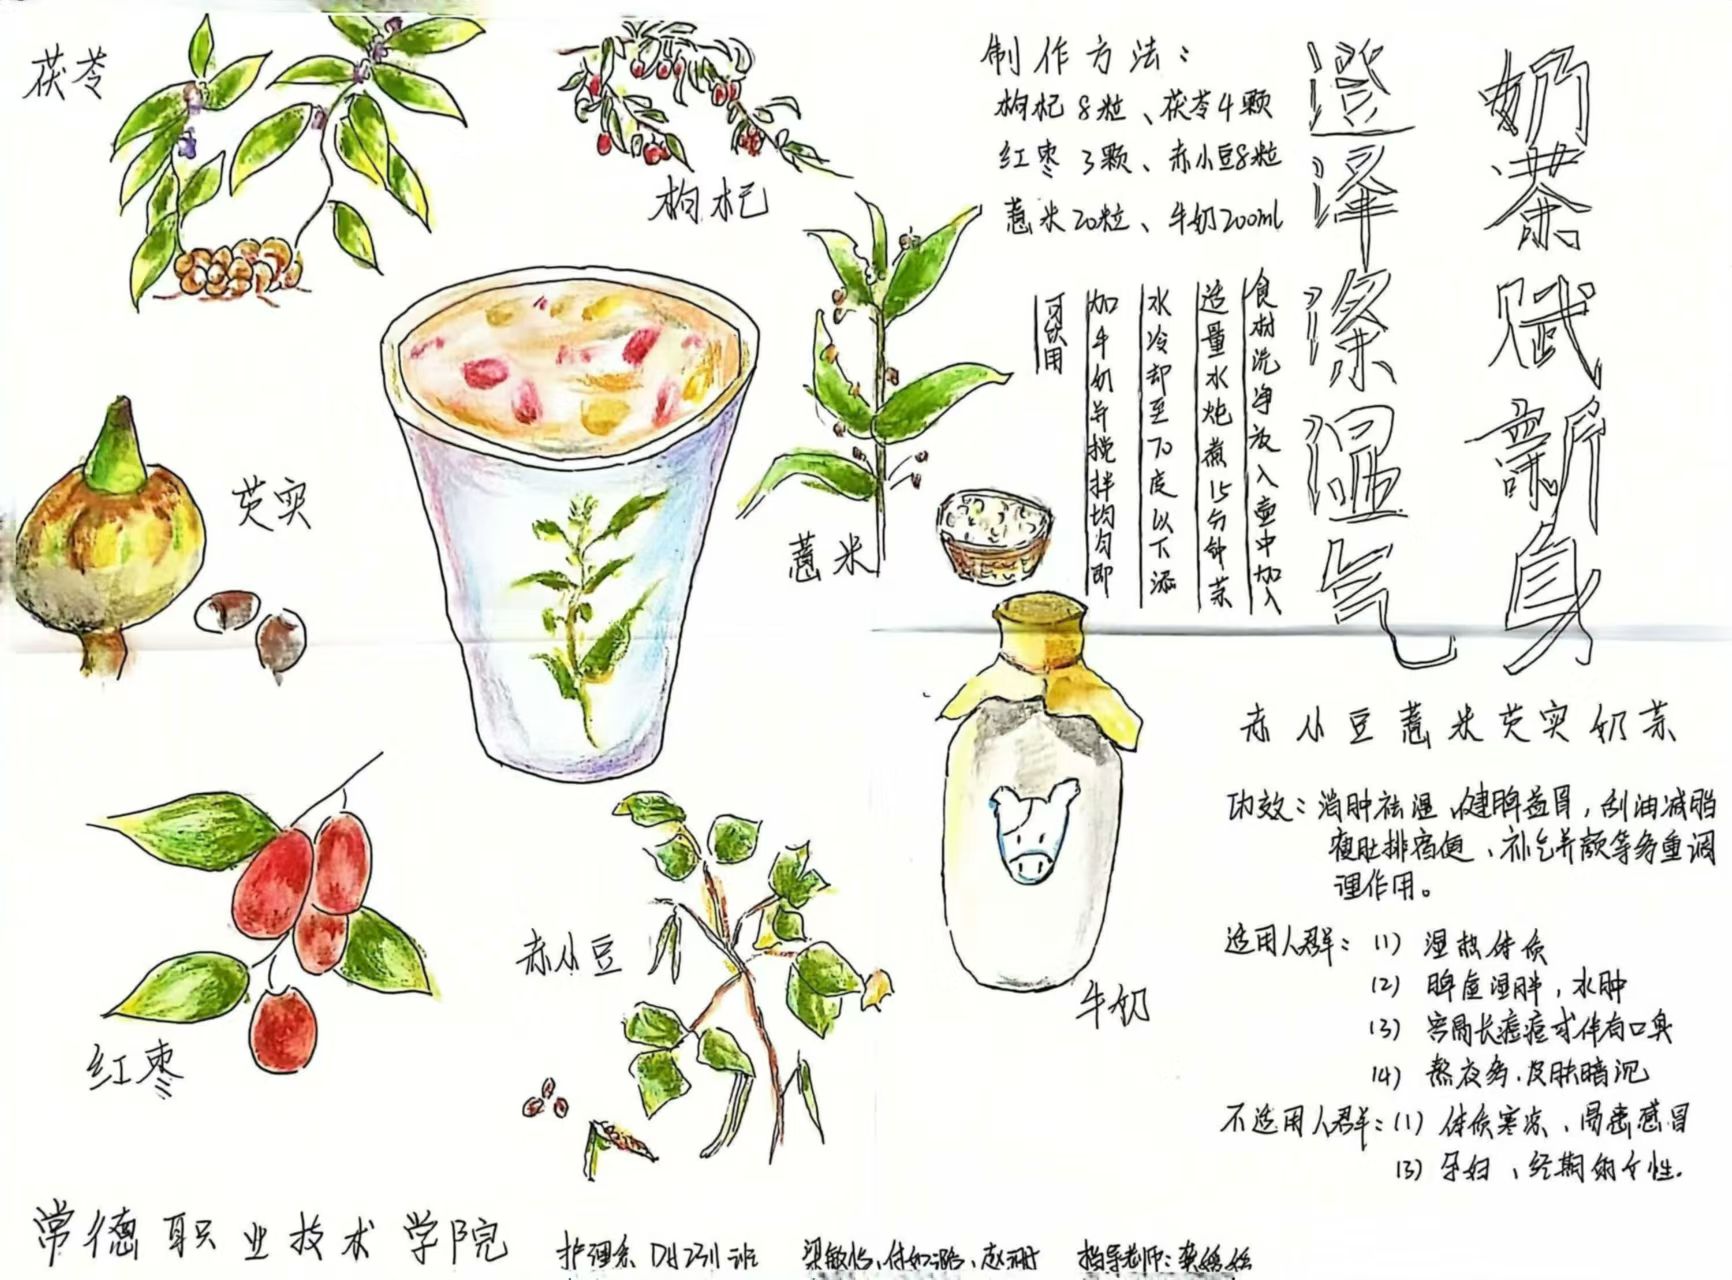 茯苓
枸杞
芡实
薏米
红枣
赤小豆
牛奶
制作方法:
枸杞8粒、茯苓4颗
红枣3颗、赤小豆8粒
薏米20粒、牛奶200ml
食材洗净放入壶中加入
适量水炖煮15分钟茶
水冷却至70度以下添
加牛奶并搅拌均匀即
可饮用
奶茶赋新身
澄泽涤湿气
赤小豆薏米芡实奶茶
功效:消肿祛湿、健脾益胃,刮油减脂
瘦肚排宿便、补气养颜等多重调
理作用。
适用人群:(1)湿热体质
(2)脾虚湿胖,水肿
(3)容易长痘痘或伴有口臭
(4)熬夜多、皮肤暗沉
不适用人群:(1)体质寒凉、易患感冒
(3)孕妇、经期的女性.
常德职业技术学院
护理系 班
指导老师: